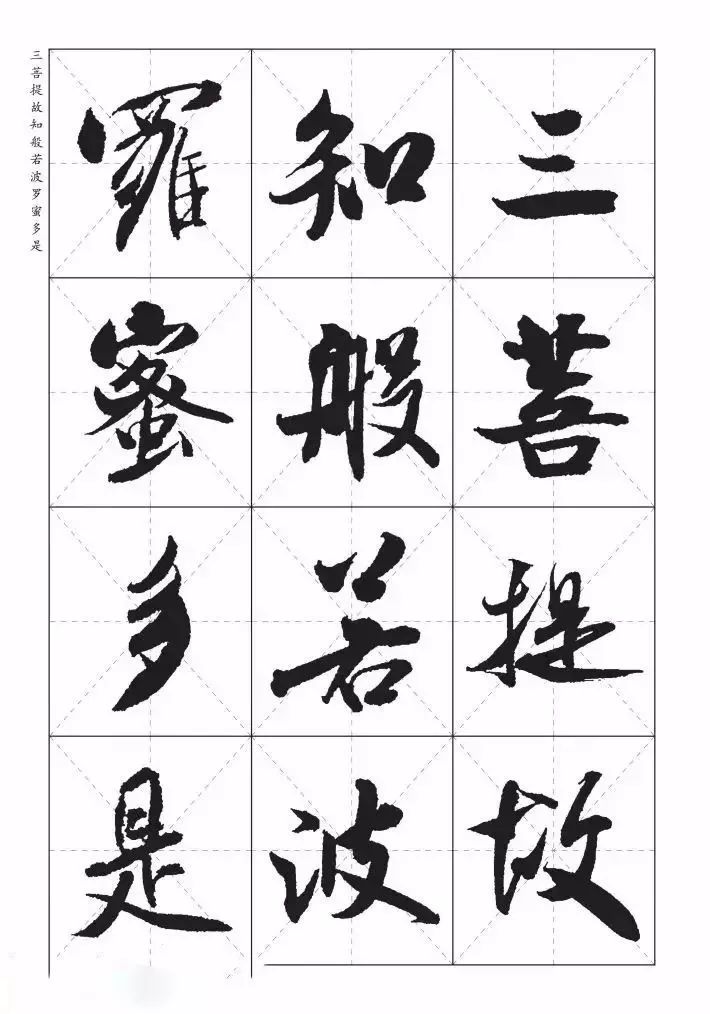 三菩提故
知般若波
羅蜜多是
三菩提故知般若波罗蜜多是